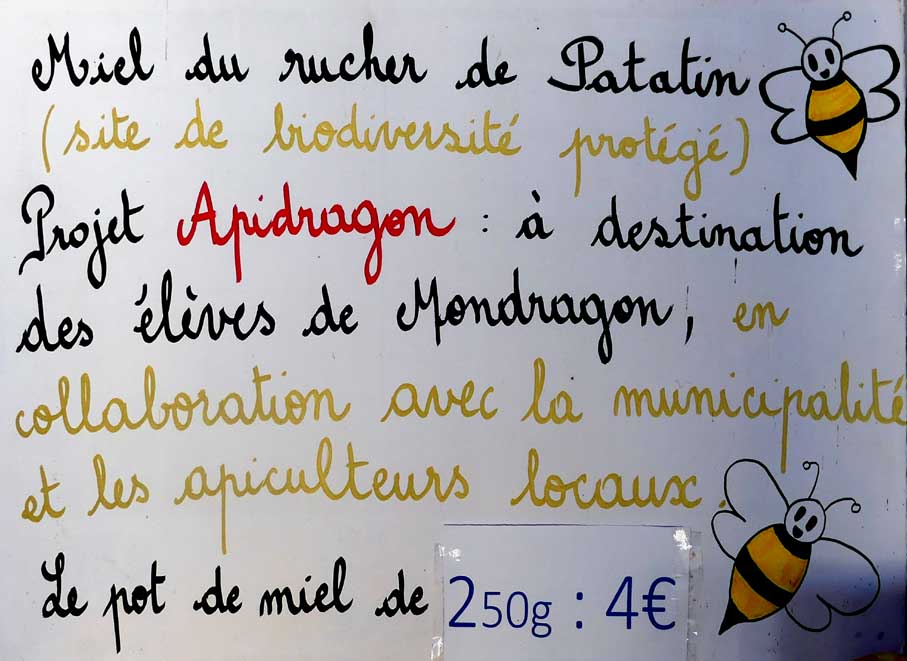 Miel du rucher de Patatin
(site de biodiversité protégé)
Projet Apidragon : à destination
des élèves de Mondragon, en
collaboration avec la municipalité
et les apiculteurs locaux.
Le pot de miel de 250g : 4€